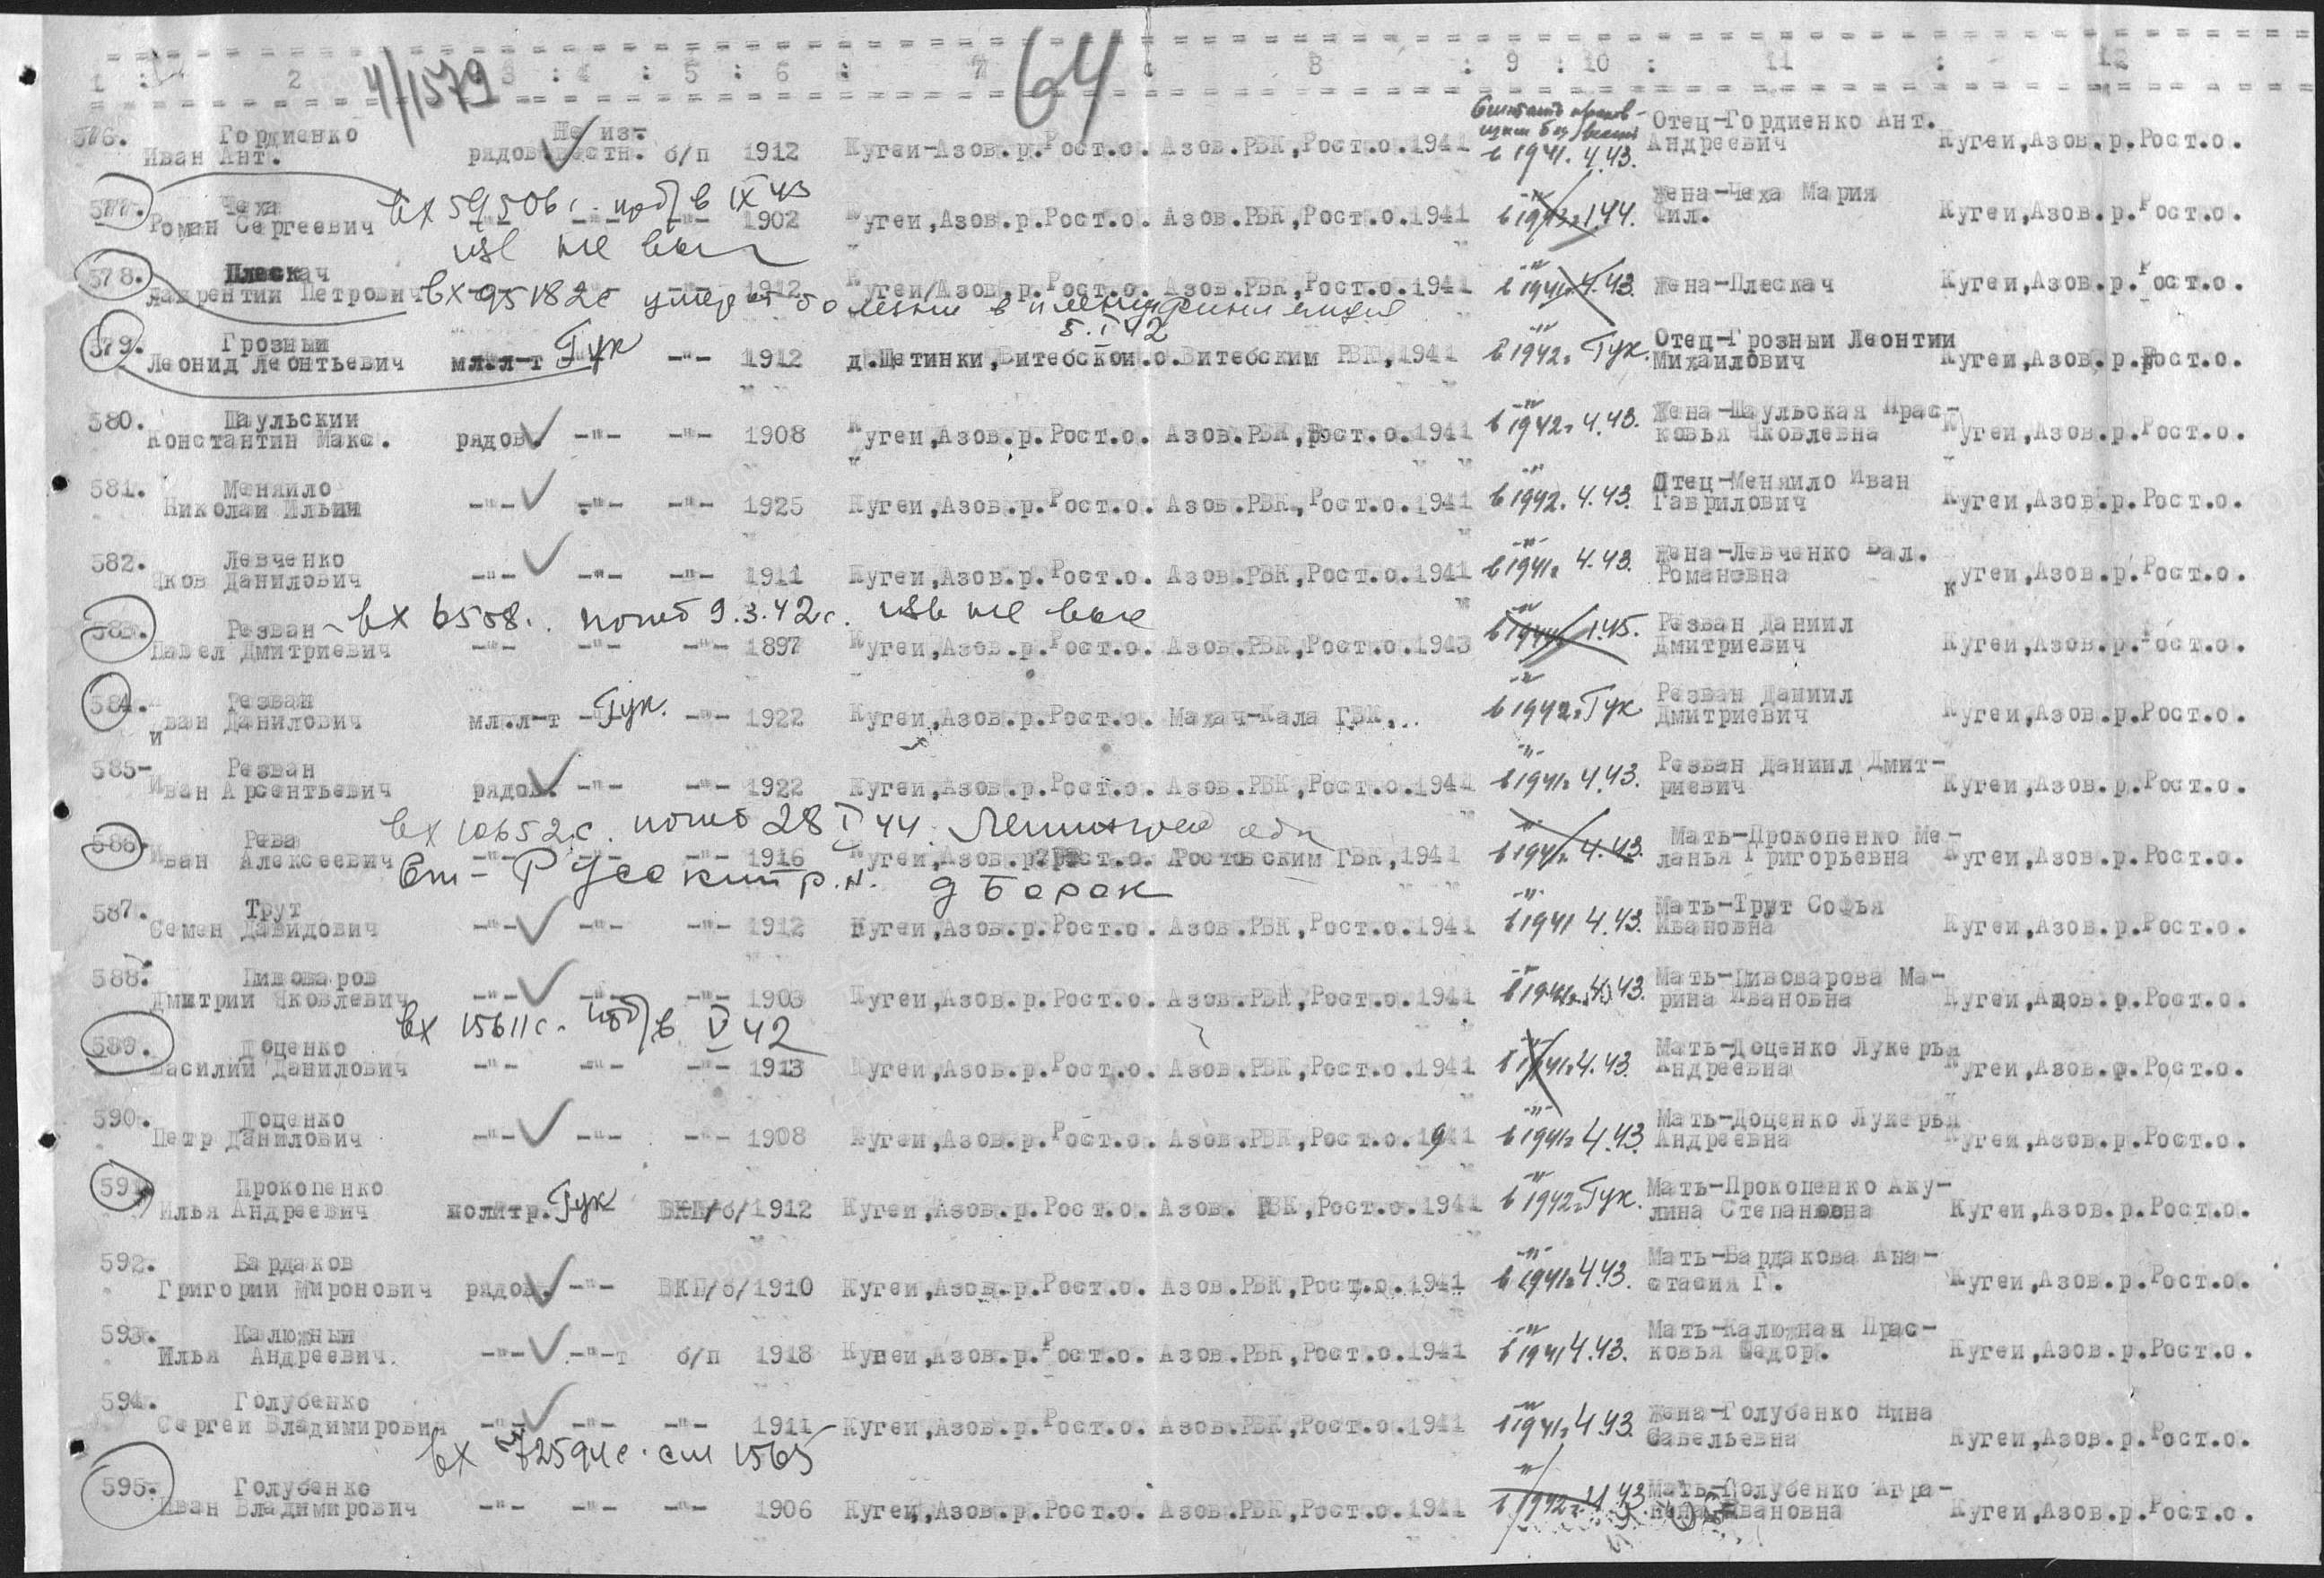 1 : 2 3 : 4 : 5 : 6 : 7 : 8 : 9 : 10 : 11 : 12
4/1579
64
576. Гордиенко Не из- Считать пропав- Отец-Гордиенко Ант.
Иван Ант. рядов. вестн. б/п 1912 Кугеи-Азов.р.Рост.о. Азов.РВК,Рост.о.1941 в 1941. 4.43. Андреевич Кугеи,Азов.р.Рост.о.
577. Чеха вх 59506с. проп/в IX 43 Жена-Чеха Мария
Роман Сергеевич -"- -"- -"- 1902 Кугеи,Азов.р.Рост.о. Азов.РВК,Рост.о.1941 -"- 1.44. Фил. Кугеи,Азов.р.Рост.о.
изв не выс
578. Плескач
Лаврентии Петрович вх 95182с -"- 1912 Кугеи/Азов.р.Рост.о. Азов.РВК,Рост.о.1941 -"- в 1941. 4.43. Жена-Плескач Кугеи,Азов.р.Рост.о.
умер от болезни в
5.I 42
579. Грозныи -"- Отец-Грозныи Леонтии
Леонид Леонтьевич мл.л-т Гук -"- 1912 д.Щетинки,Витебскои.о.Витебским РВК,1941 в 1942г Гук. Михаилович Кугеи,Азов.р.Рост.о.
580. Шаульскии -"- Жена-Шаульская Прас-
Константин Макс. рядов. -"- -"- 1908 Кугеи,Азов.р.Рост.о. Азов.РВК,Рост.о.1941 в 1942г 4.43. ковья Яковлевна Кугеи,Азов.р.Рост.о.
581. Меняило -"- Отец-Меняило Иван
Николаи Ильич -"- -"- -"- 1925 Кугеи,Азов.р.Рост.о. Азов.РВК,Рост.о.1941 в 1942. 4.43. Гаврилович Кугеи,Азов.р.Рост.о.
582. Левченко -"- Жена-Левченко Вал.
Яков Данилович -"- -"- -"- 1911 Кугеи,Азов.р.Рост.о. Азов.РВК,Рост.о.1941 в 1941г 4.43. Романовна Кугеи,Азов.р.Рост.о.
583. Резван вх 6508с. погиб 9.3.42г. изв не выс -"- 1.45. Резван Даниил
Павел Дмитриевич -"- -"- -"- 1897 Кугеи,Азов.р.Рост.о. Азов.РВК,Рост.о.1943 Дмитриевич Кугеи,Азов.р.Рост.о.
584. Резван -"- Резван Даниил
Иван Данилович мл.л-т -"- Гук. -"- 1922 Кугеи,Азов.р.Рост.о. Махач-Кала ГВК,.. в 1942г Гук Дмитриевич Кугеи,Азов.р.Рост.о.
585- Резван -"- Резван Даниил Дмит-
Иван Арсентьевич рядов. -"- -"- 1922 Кугеи,Азов.р.Рост.о. Азов.РВК,Рост.о.1941 в 1941г 4.43. риевич Кугеи,Азов.р.Рост.о.
586. Рева вх 10652с. погиб 28 I 44. Ленинград обл -"- Мать-Прокопенко Ме-
Иван Алексеевич -"- -"- -"- 1916 Кугеи,Азов.р.Рост.о. Ростовским ГВК,1941 в 1941г 4.43. ланья Григорьевна Кугеи,Азов.р.Рост.о.
р.н. д Барак
587. Трут -"- Мать-Трут Софья
Семен Давидович -"- -"- -"- 1912 Кугеи,Азов.р.Рост.о. Азов.РВК,Рост.о.1941 в 1941 4.43. Ивановна Кугеи,Азов.р.Рост.о.
588. Пивоваров -"- Мать-Пивоварова Ма-
Дмитрии Яковлевич -"- -"- -"- 1903 Кугеи,Азов.р.Рост.о. Азов.РВК,Рост.о.1941 в 1941г. 4.43. рина Ивановна Кугеи,Азов.р.Рост.о.
вх 15611с. проп/в V 42
589. Доценко -"- Мать-Доценко Лукерья
Василии Данилович -"- -"- -"- 1913 Кугеи,Азов.р.Рост.о. Азов.РВК,Рост.о.1941 в 1941г 4.43. Андреевна Кугеи,Азов.р.Рост.о.
590. Доценко -"- Мать-Доценко Лукерья
Петр Данилович -"- -"- -"- 1908 Кугеи,Азов.р.Рост.о. Азов.РВК,Рост.о.1941 в 1941г 4.43 Андреевна Кугеи,Азов.р.Рост.о.
591. Прокопенко -"- Мать-Прокопенко Аку-
Илья Андреевич политр. Гук ВКП/б/1912 Кугеи,Азов.р.Рост.о. Азов. РВК,Рост.о.1941 в 1942г Гук. лина Степановна Кугеи,Азов.р.Рост.о.
592. Бардаков -"- Мать-Бардакова Ана-
Григории Миронович рядов. -"- ВКП/б/1910 Кугеи,Азов.р.Рост.о. Азов.РВК,Рост.о.1941 в 1941г 4.43. стасия Г. Кугеи,Азов.р.Рост.о.
593. Калюжныи -"- Мать-Калюжная Прас-
Илья Андреевич. -"- -"-т б/п 1918 Кугеи,Азов.р.Рост.о. Азов.РВК,Рост.о.1941 в 1941 4.43. ковья Федор. Кугеи,Азов.р.Рост.о.
594. Голубенко -"- Жена-Голубенко Нина
Сергеи Владимирович -"- -"- -"- 1911 Кугеи,Азов.р.Рост.о. Азов.РВК,Рост.о.1941 в 1941г 4.43. Савельевна Кугеи,Азов.р.Рост.о.
вх 72594с. ст 1565
595. Голубенко -"- Мать-Голубенко Агра-
Иван Владимирович -"- -"- -"- 1906 Кугеи,Азов.р.Рост.о. Азов.РВК,Рост.о.1941 в 1942г. 4.43. Ивановна Кугеи,Азов.р.Рост.о.